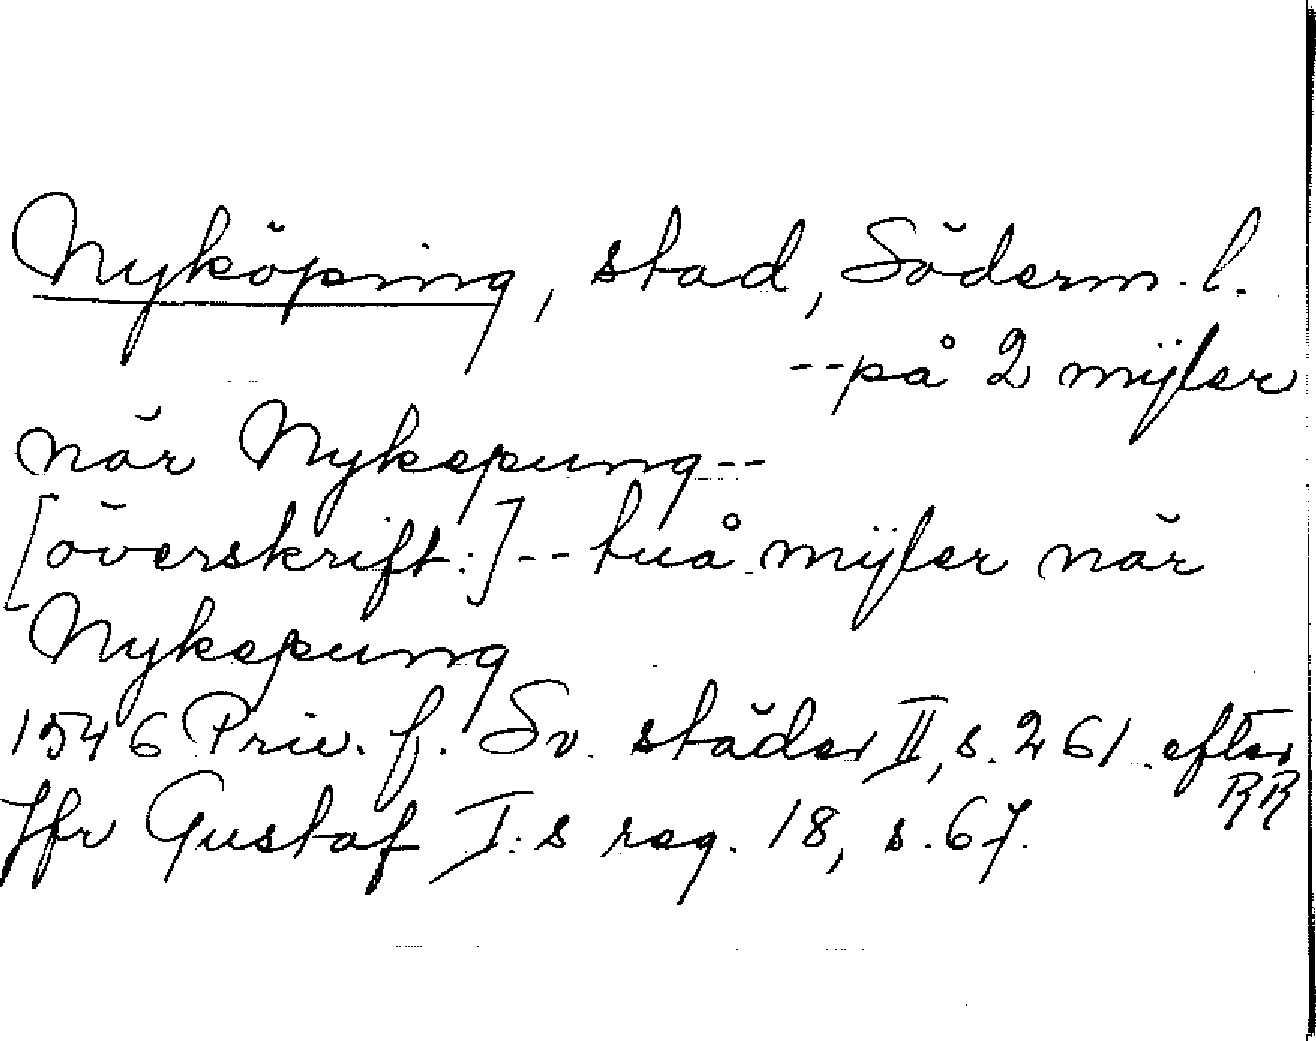 Nyköping, stad, Söderm. l.
--på 2 mijler
när Nykepung--
[överskrift:]--tuå mijler när
Nykepung
1546 Priv. f. Sv. städer II, s. 261 efter
RR
Jfr Gustaf I:s reg. 18, s. 67.